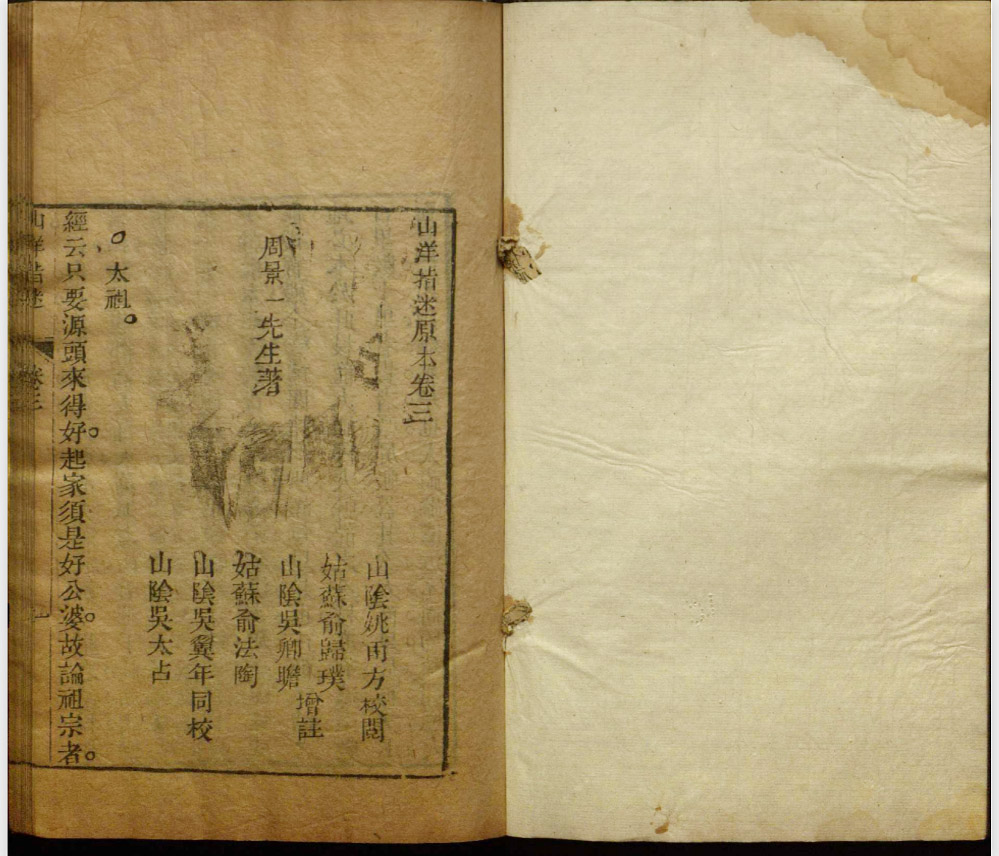 山洋指迷原本卷三
周景一先生著
山陰姚雨方校閱
姑蘇俞歸璞
山陰吳卿瞻
增註
姑蘇俞法陶
山陰吳翼年同校
山陰吳太占
太祖。
經云只要源頭來得好。起家須是好公婆。故論祖宗者。
山洋指迷 卷三 一